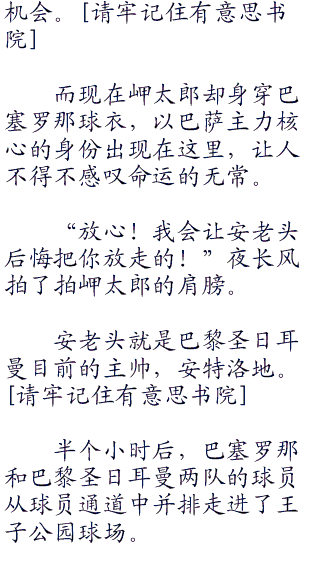 机会。[请牢记住有意思书
院]
而现在岬太郎却身穿巴
塞罗那球衣，以巴萨主力核
心的身份出现在这里，让人
不得不感叹命运的无常。
“放心！我会让安老头
后悔把你放走的！”夜长风
拍了拍岬太郎的肩膀。
安老头就是巴黎圣日耳
曼目前的主帅，安特洛地。
[请牢记住有意思书院]
半个小时后，巴塞罗那
和巴黎圣日耳曼两队的球员
从球员通道中并排走进了王
子公园球场。